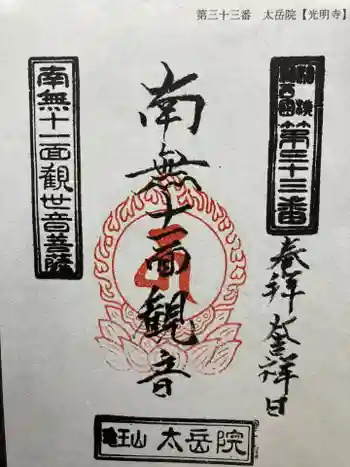 第三十三番　太岳院【光明寺】
第三十三番
奉拝 登祥日
南無十一面観音
南無十一面観世音菩薩
王山 太岳院